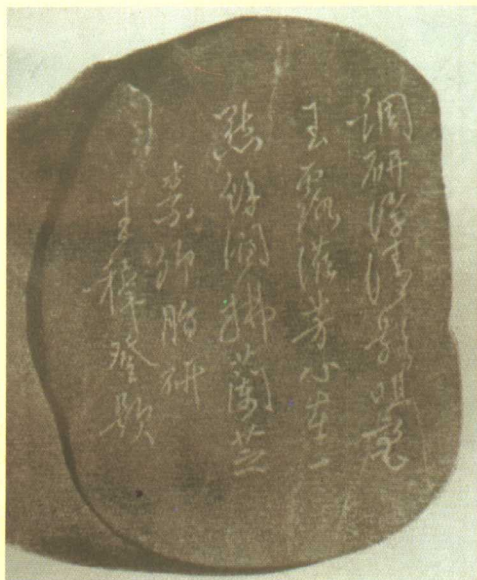 調研浮清影咀毫
玉露滋芳心在一
點餘潤拂蘭芝
素卿脂研
王穉登題